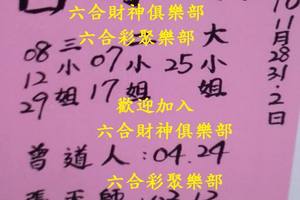 六合財神俱樂部
六合彩聚樂部
08 三 07 二 大
12 小 小 25 小
29 姐 17 姐 姐
10
11
月
28
31.2
日
歡迎加入
六合財神俱樂部
曾道人:04.24
六合彩聚樂部